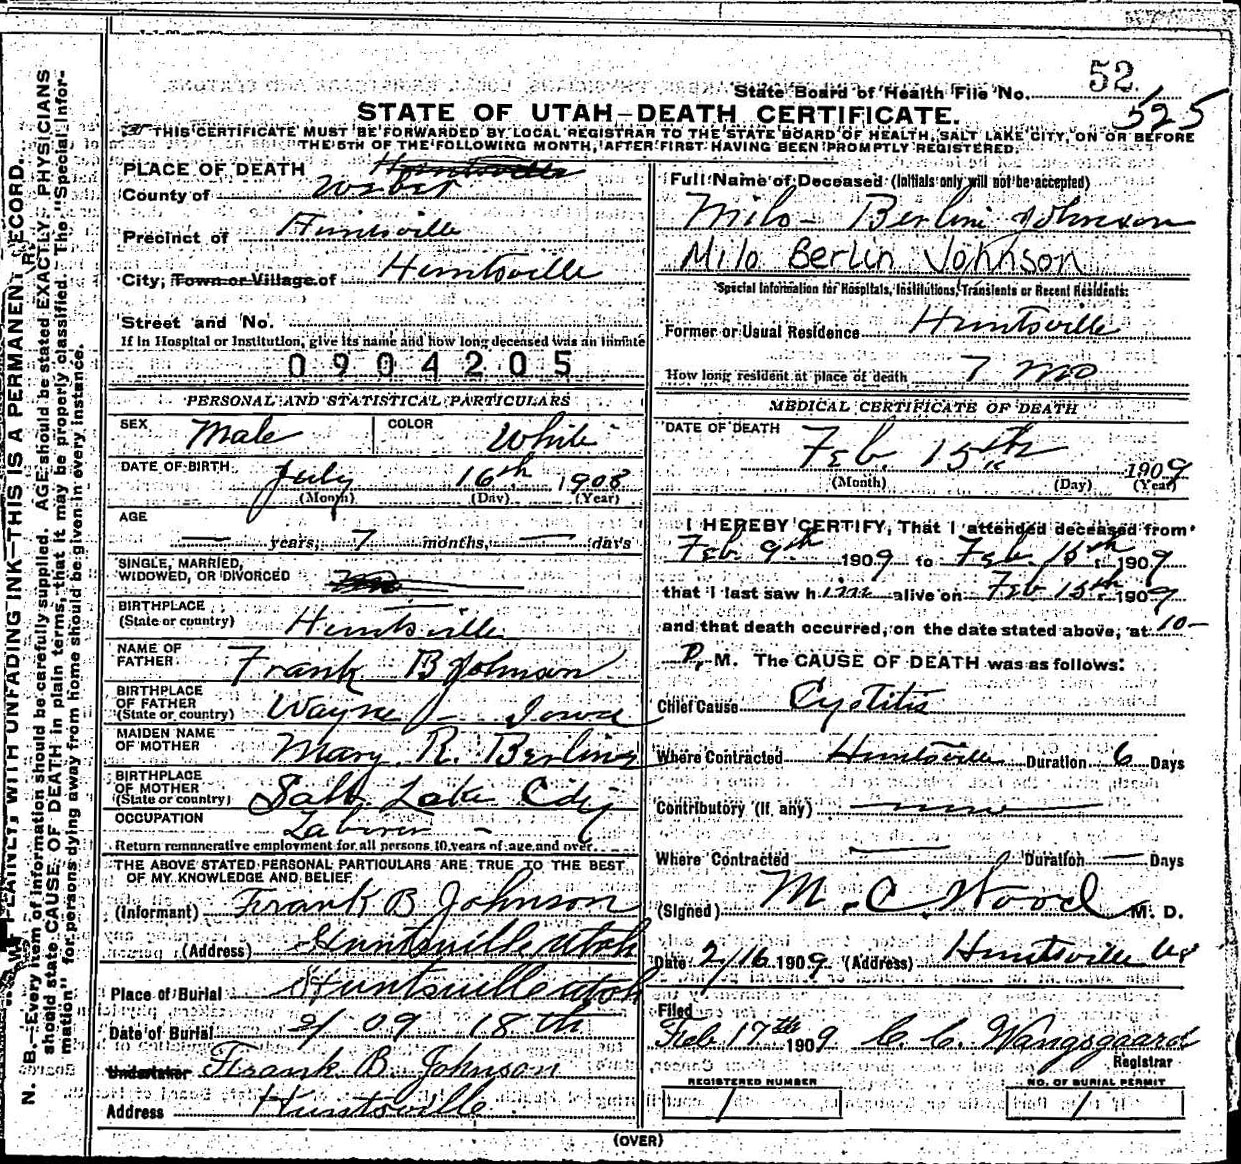 52
State Board of Health File No. 525
STATE OF UTAH–DEATH CERTIFICATE.
THIS CERTIFICATE MUST BE FORWARDED BY LOCAL REGISTRAR TO THE STATE BOARD OF HEALTH, SALT LAKE CITY, ON OR BEFORE
THE 5TH OF THE FOLLOWING MONTH, AFTER FIRST HAVING BEEN PROMPTLY REGISTERED.
N. B.—Every item of information should be carefully supplied. AGE should be stated EXACTLY. PHYSICIANS
should state CAUSE OF DEATH in plain terms, that it may be properly classified. The "Special Infor-
mation" for persons dying away from home should be given in every instance.
PLAINLY, WITH UNFADING INK—THIS IS A PERMANENT RECORD.
PLACE OF DEATH Huntsville
County of Weber
Precinct of Huntsville
City, Town or Village of Huntsville
Street and No.
If in Hospital or Institution, give its name and how long deceased was an inmate
0904205
PERSONAL AND STATISTICAL PARTICULARS
SEX Male COLOR White
DATE OF BIRTH July 16th 1908
(Month) (Day) (Year)
AGE
— years, 7 months, — days
SINGLE, MARRIED,
WIDOWED, OR DIVORCED
BIRTHPLACE
(State or country) Huntsville
NAME OF
FATHER Frank B Johnson
BIRTHPLACE
OF FATHER
(State or country) Wayne – Iowa
MAIDEN NAME
OF MOTHER Mary R. Berlin
BIRTHPLACE
OF MOTHER
(State or country) Salt Lake City
OCCUPATION
Laborer –
Return remunerative employment for all persons 10 years of age and over
THE ABOVE STATED PERSONAL PARTICULARS ARE TRUE TO THE BEST
OF MY KNOWLEDGE AND BELIEF
(Informant) Frank B Johnson
(Address) Huntsville Utah
Place of Burial Huntsville Utah
Date of Burial 2/09 18th
Undertaker Frank B. Johnson
Address Huntsville
Full Name of Deceased (Initials only will not be accepted)
Milo – Berlin Johnson
Milo Berlin Johnson
Special Information for Hospitals, Institutions, Transients or Recent Residents:
Former or Usual Residence Huntsville
How long resident at place of death 7 mo
MEDICAL CERTIFICATE OF DEATH
DATE OF DEATH
Feb. 15th 1909
(Month) (Day) (Year)
I HEREBY CERTIFY, That I attended deceased from
Feb 9th 1909 to Feb. 15th 1909
that I last saw him alive on Feb 15th 1909
and that death occurred, on the date stated above, at 10–
P. M. The CAUSE OF DEATH was as follows:
Chief Cause Cystitis
Where Contracted Huntsville Duration 6 Days
Contributory (If any)
Where Contracted — Duration — Days
(Signed) M. C. Wood M. D.
Date 2/16 1909 (Address) Huntsville Ut
Filed
Feb 17th 1909 C. C. Wangsgaard
Registrar
REGISTERED NUMBER
1
NO. OF BURIAL PERMIT
1
(OVER)